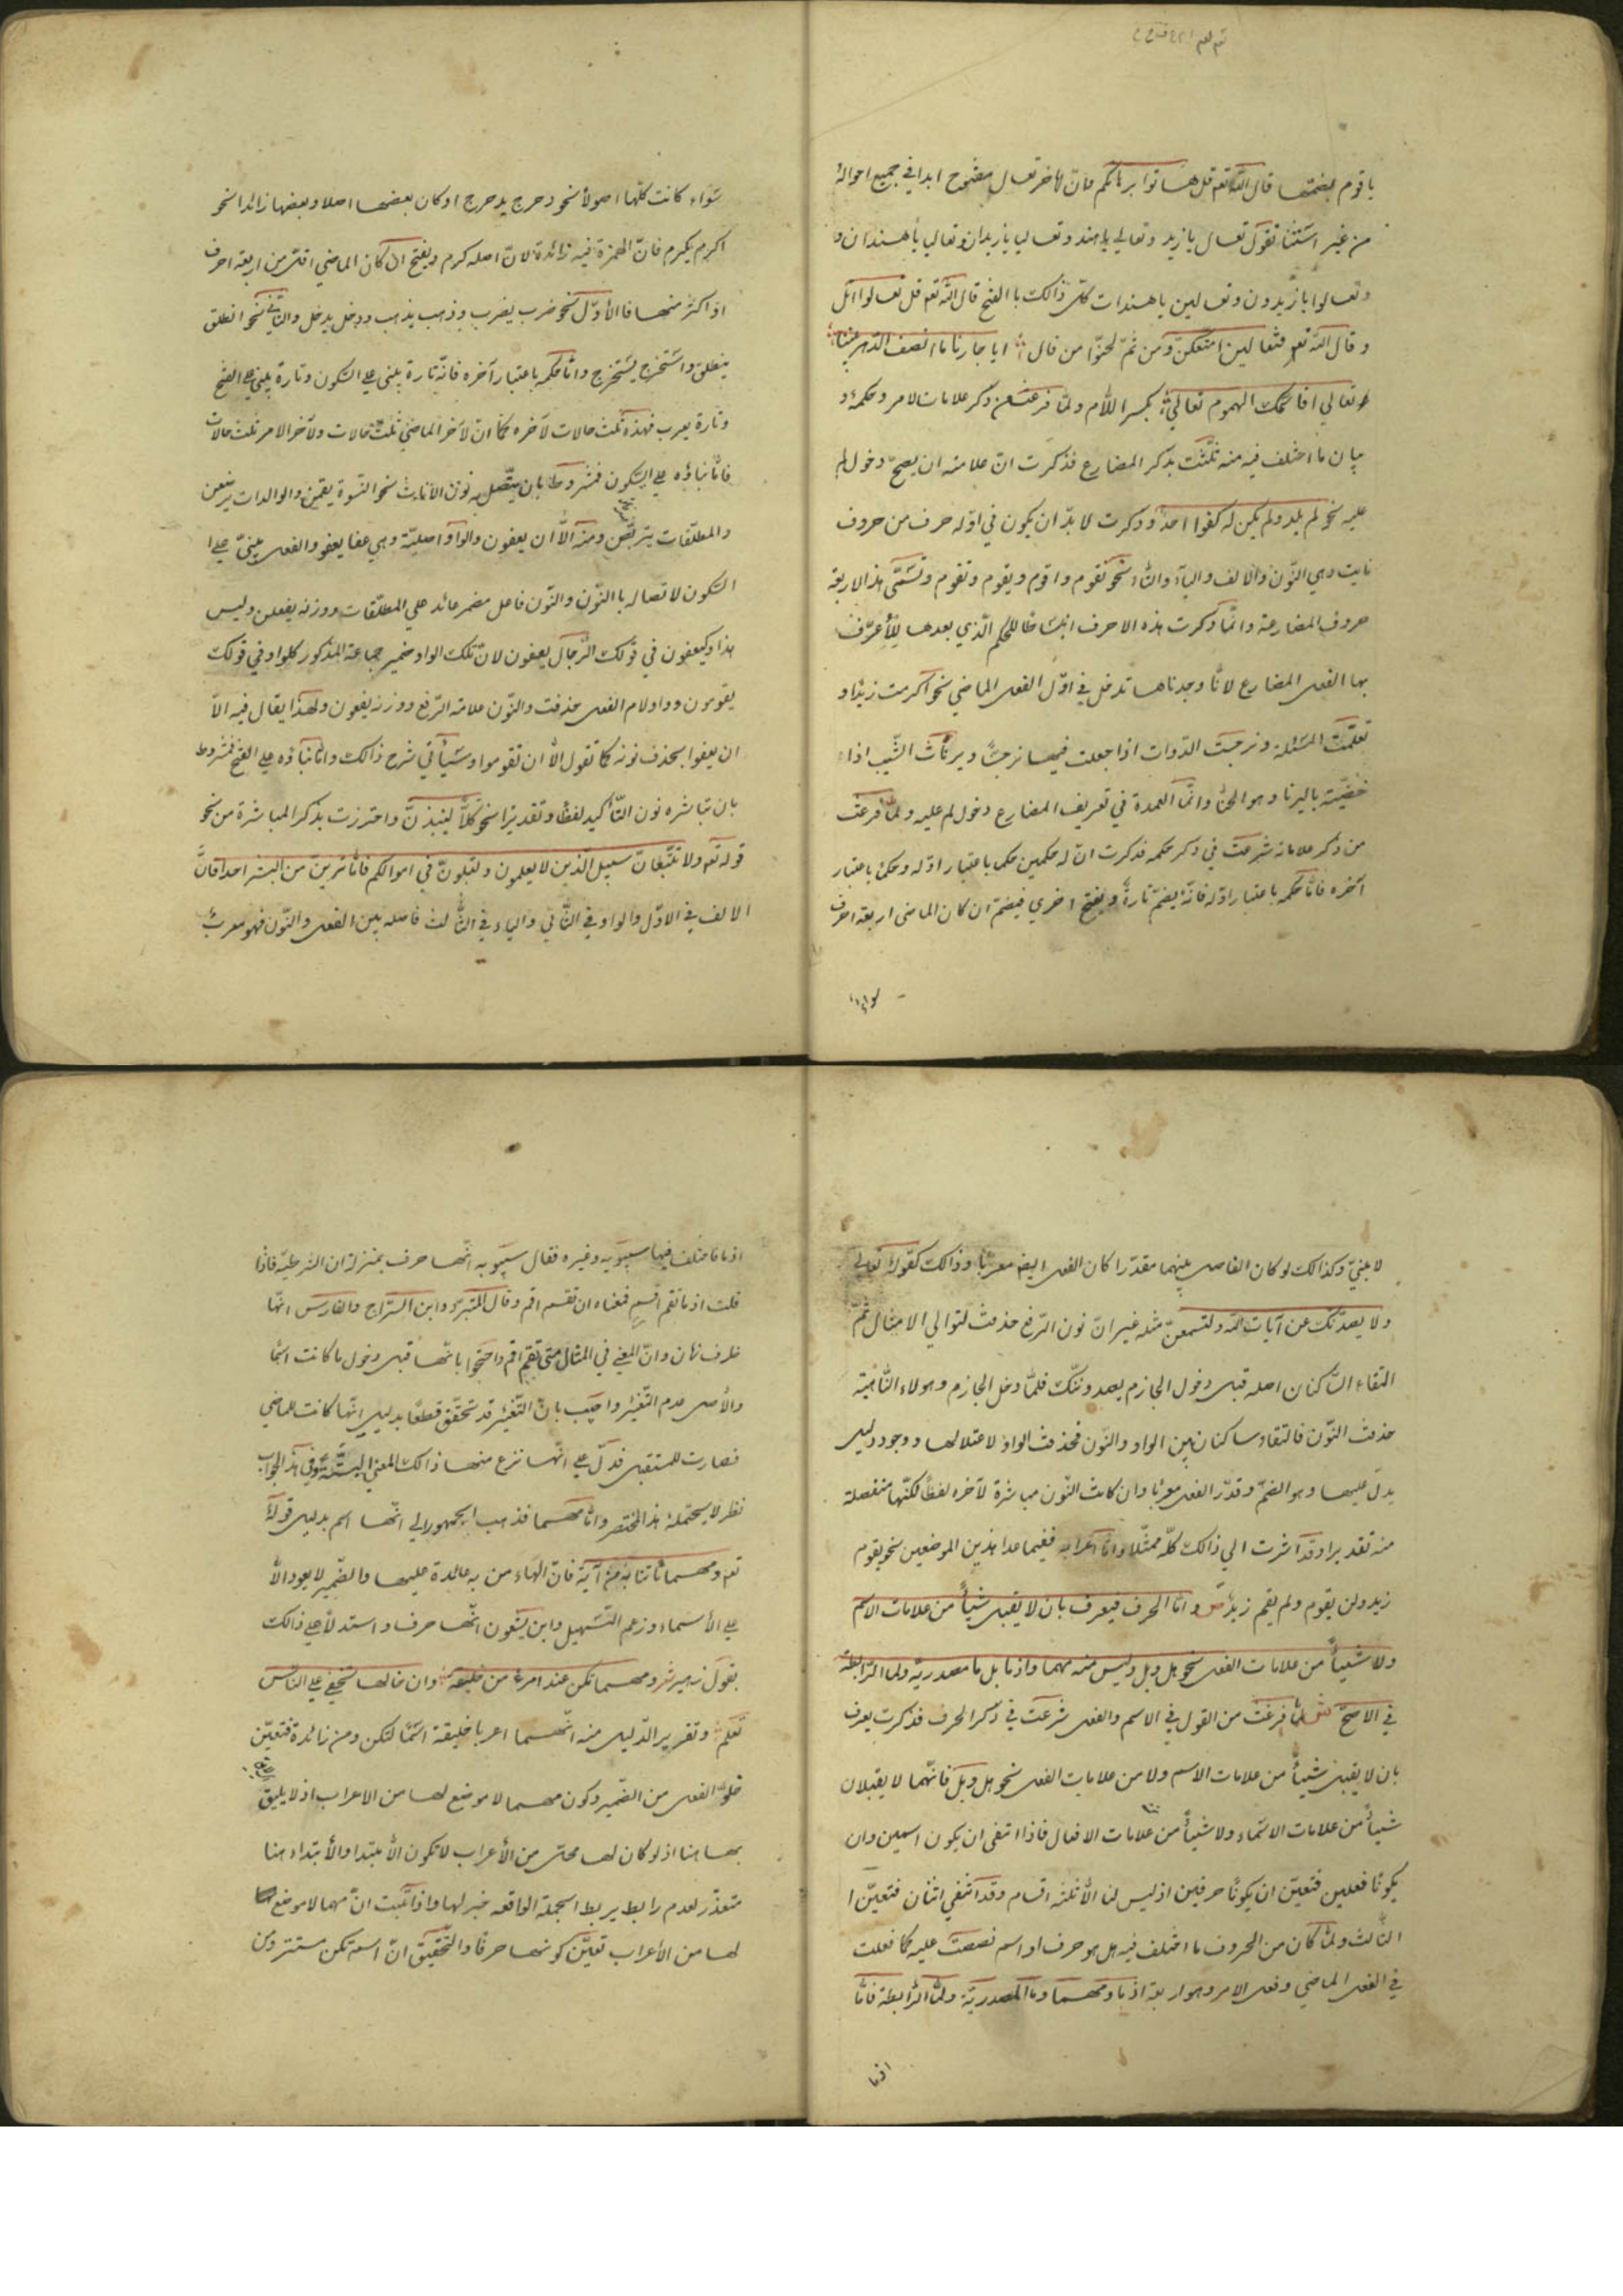 يا قوم بضمتها قال الله تعم قل هاتوا برهانكم وانّ لآخر تعال مفتوح ابدا في جميع احواله
من غير استثناء تقول تعال يا زيد وتعالي يا هند وتعاليا يا زيدان وتعاليا يا هندان و
وتعالوا يا زيدون وتعالين يا هندات كلّ ذالك با الفتح قال الله تعم قل تعالوا اتل
وقال الله تعم فتعالين امتعكنّ ومن ثمّ لحنّوا من قال ايا جارتا ما انصف الدهر بيننا
تعالي اقاسمك الهموم تعالي بكسر اللّام ولمّا فرغت من ذكر علامات الامر وحكمه و
بيان ما اختلف فيه منه ثلّثت بذكر المضارع فذكرت انّ علامته ان يصحّ دخول لم
عليه نحو لم يلد ولم يكن له كفوا احد وذكرت لا بدّ ان يكون في اوّله حرف من حروف
نايت وهي النّون والالف والياء والتّاء نحو نقوم واقوم ويقوم وتقوم وتسمّى هذا الاربعة
حروف المضارعة وانّما ذكرت هذه الاحرف ابساطا للحكم الّذي بعدها لا لأعرّف
بها الفعل المضارع لانّا وجدناها تدخل في اوّل الفعل الماضي نحو اكرمت زيدا و
تعلّمت المسئلة ونرجست الدّوات اذا جعلت فيها نرجسًا ويرنأت الشّيب اذا
خضبّته باليرنا وهو الحنّا وانّما العمدة في تعريف المضارع دخول لم عليه ولمّا فرغت
من ذكر علاماته شرعت في ذكر حكمه فذكرت انّ له حكمين حكم باعتبار اوّله وحكم باعتبار
آخره فامّا حكمه باعتبار اوّله فانّه يضمّ تارة ويفتح اخري فيضمّ ان كان الماضي اربعة احرف
سواء
سَواء كانت كلّها اصولا نحو دحرج يدحرج او كان بعضها اصلا وبعضها زائدا نحو
اكرم يكرم فانّ الهمزة فيه زائدة لانّ اصله كرم ويفتح ان كان الماضي اقلّ من اربعة احرف
او اكثر منها فالأوّل نحو ضرب يضرب وذهب يذهب ودخل يدخل والثّاني نحو انطلق
ينطلق واستخرج يستخرج وامّا حكمه باعتبار آخره فانّه تارة يبنى علي السّكون وتارة يبني علي الفتح
وتارة يعرب فهذه ثلث حالات لآخره كما انّ لآخر الماضي ثلث حالات ولآخر الامر ثلث حالات
فامّا بناؤه علي السّكون فمشروط بان يتّصل به نون الاناث نحو النّسوة يقمن والوالدات يرضعن
والمطلّقات يتربّصن ومنه الّا ان يعفون والواو اصليّة وهي عفا يعفو والفعل مبنيّ علي ا
السّكون لاتّصاله با النّون والنّون فاعل مضمر عائد علي المطلّقات ووزنه يفعلن وليس
هذا كيعفون في قولك الرّجال يعفون لانّ تلك الواو ضمير جماعة المذكور كالواو في قولك
يقومون وواو لام الفعل حذفت والنّون علامة الرّفع ووزنه يفعون ولهذا يقال فيه الّا
ان يعفوا بحذف نونه كما تقول الّا ان تقوموا وسيأتي شرح ذالك وامّا بناؤه علي الفتح فمشروط
بان تباشره نون التّأكيد لفظا وتقديرا نحو كلّا لينبذنّ واحترزت بذكر المباشرة من نحو
قوله تعم ولا تتّبعانّ سبيل الّذين لا يعلمون ولتبلونّ في اموالكم فامّا ترينّ من البشر احدا فانّ
الالف في الاوّل والواو في الثّاني والياء في الثّالث فاصلة بين الفعل والنّون فهو معرب
لا مبنيّ وكذالك لو كان الفاصل بينهما مقدّرا كان الفعل ايضم معربا وذالك كقوله تعالي
ولا يصدّنّك عن آيات الله ولتسمعنّ مثله غير انّ نون الرّفع حذفت لتوالي الامثال ثمّ
التقاء السّاكنان اصله قبل دخول الجازم يصدوننّك فلمّا دخل الجازم وهو لاء النّاهية
حذفت النّون فالتقاء ساكنان من الواو والنّون فحذفت الواو لاعتلالها ووجود دليل
يدلّ عليها وهو الضّمّ وقدّر الفعل معربا وان كانت النّون مباشرة لآخره لفظا لكنّها منفصلة
منه تقديرا وقد اشرت الي ذالك كلّه ممثّلا وامّا اعرابه ففيما عدا هذين الموضعين نحو يقوم
زيد ولن يقوم ولم يقم زيد ص وامّا الحرف فيعرف بان لا يقبل شيأ من علامات الاسم
ولا شيأ من علامات الفعل نحو هل وبل وليس منه مهما واذ ما بل ما مصدريّة ولما الرّابطة
في الاصحّ ش لمّا فرغت من القول في الاسم والفعل شرعت في ذكر الحرف فذكرت يعرف
بان لا يقبل شيأ من علامات الاسم ولا من علامات الفعل نحو هل وبل فانّهما لا يقبلان
شيأ من علامات الاسماء ولا شيأ من علامات الافعال فاذا انتفي ان يكون اسمين وان
يكونا فعلين فتعيّن ان يكونا حرفين اذ ليس لنا الّا ثلثة اقسام وقد انتفي اثنان فتعيّن ا
الثّالث ولمّا كان من الحروف ما اختلف فيه هل هو حرف او اسم نصصت عليه كما فعلت
في الفعل الماضي وفعل الامر وهو اربعة اذ ما ومهما وما المصدريّة ولمّا الرّابطة فامّا
اذما
اذما فاختلف فيها سيبويه وغيره فقال سيبويه انّها حرف بمنزلة ان الشرطيّة فاذا
قلت اذ ما تقم اقم فمعناه ان تقم اقم وقال المبرّد وابن السّرّاج والفارس انّها
ظرف زمان وانّ المعني في المثال متي تقم اقم واحتجّوا بانّها قبل دخول ما كانت اسما
والأصل عدم التّغيّر واجيب بانّ التّغيّر قد تحقّق قطعًا بدليل انّها كانت للماضي
فصارت للمستقبل فدلّ علي انّها نزع منها ذالك المعني البتّة وفي هذا الجواب
نظر لا يحتمله هذا المختصر وامّا مهما فذهب الجمهور الي انّها اسم بدليل قوله
تعم ومهما تأتنا به من آية فانّ الهاء من به عائدة عليها والضّمير لا يعود الّا
علي الأسماء وزعم السّهيل وابن يسعون انّها حرف واستدلّا علي ذالك
بقول زهير ومهما تكن عند امرء من خليقة وان خالها تخفي علي النّاس
تعلم وتقرير الدّليل منه انّهما اعربا خليقة اسما لتكن ومن زائدة فتعيّن
خلوّ الفعل من الضّمير وكون مهما لا موضع لها من الاعراب اذ لا يليق
بها هنا اذ لو كان لها محلّ من الأعراب لا تكون الّا مبتدا والأبتداء هنا
متعذّر لعدم رابط يربط الجملة الواقعة خبر لها واذا ثبت انّ مهما لا موضع
لها من الأعراب تعيّن كونها حرفًا والتّحقيق انّ اسم تكن مستتر ومن